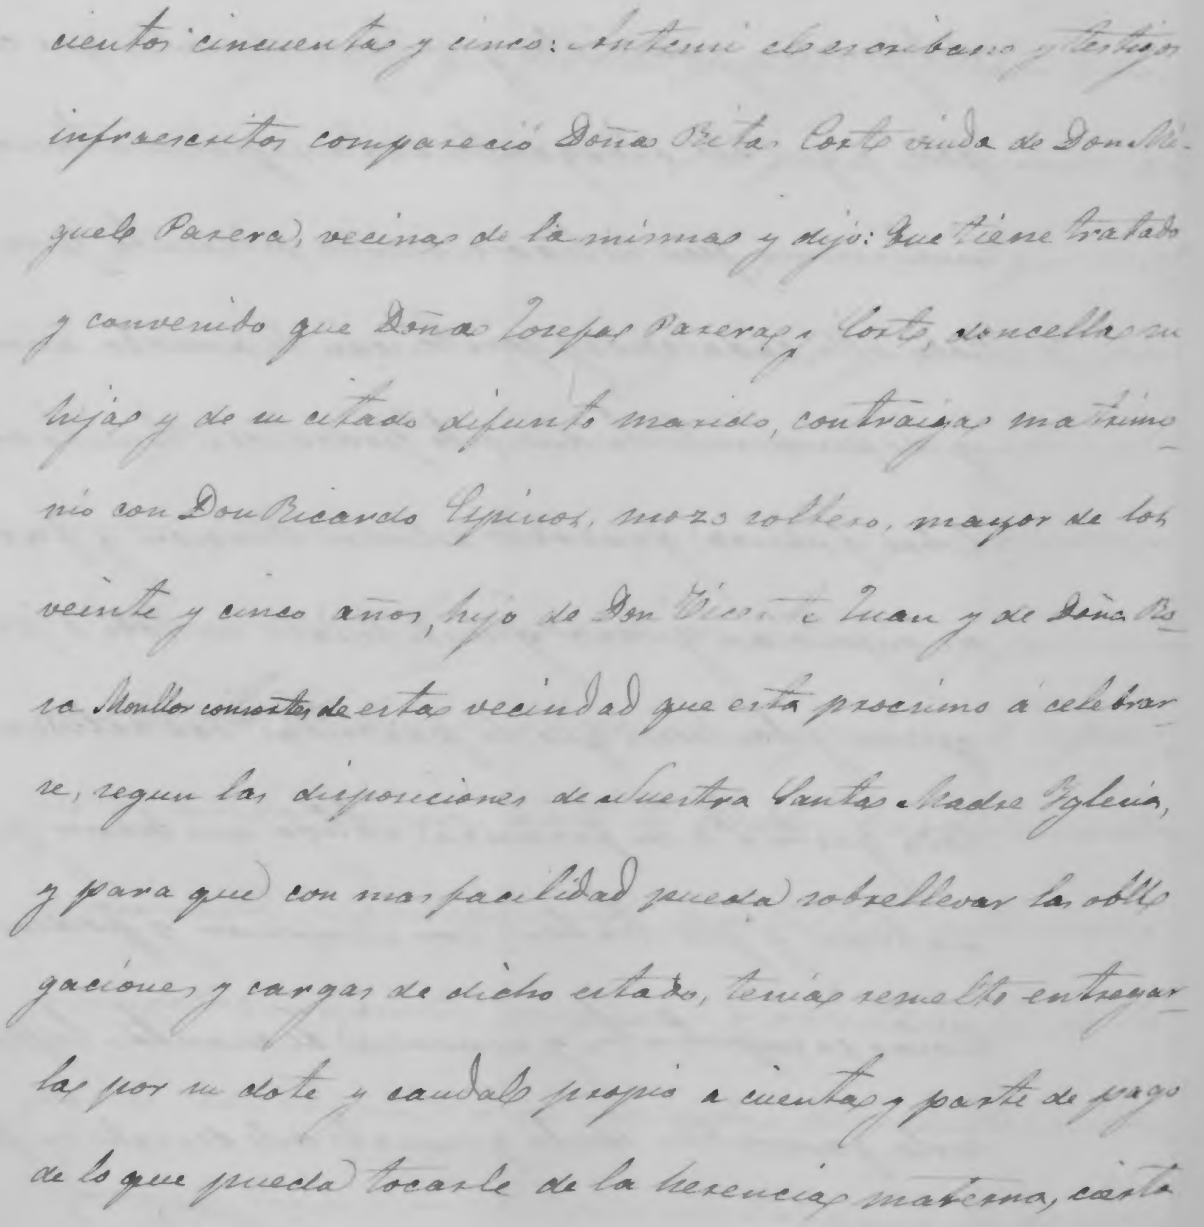 cientos cincuenta y cinco: Antemi el escribano y testigos
infraescritos compareció Doña Rita Cort viuda de Don Mi-
guel Parera, vecina de la misma y dijo: Que tiene tratado
y convenido que Doña Josefa Parera y Cort, doncella su
hija y de su citado difunto marido, contraiga matrimo-
nio con Don Ricardo Espinos, mozo soltero, mayor de los
veinte y cinco años, hijo de Don Vicente Juan y de Doña Ro-
sa Monllor consortes de esta vecindad que esta procsimo á celebrar-
se, segun las disposiciones de Nuestra Santa Madre Yglesia,
y para que con mas facilidad pueda sobrellevar las obli
gaciones y cargas de dicho estado, tenia resuelto entregar-
la por su dote y caudal propio a cuenta y parte de pago
de lo que pueda tocarle de la herencia materna, cierta